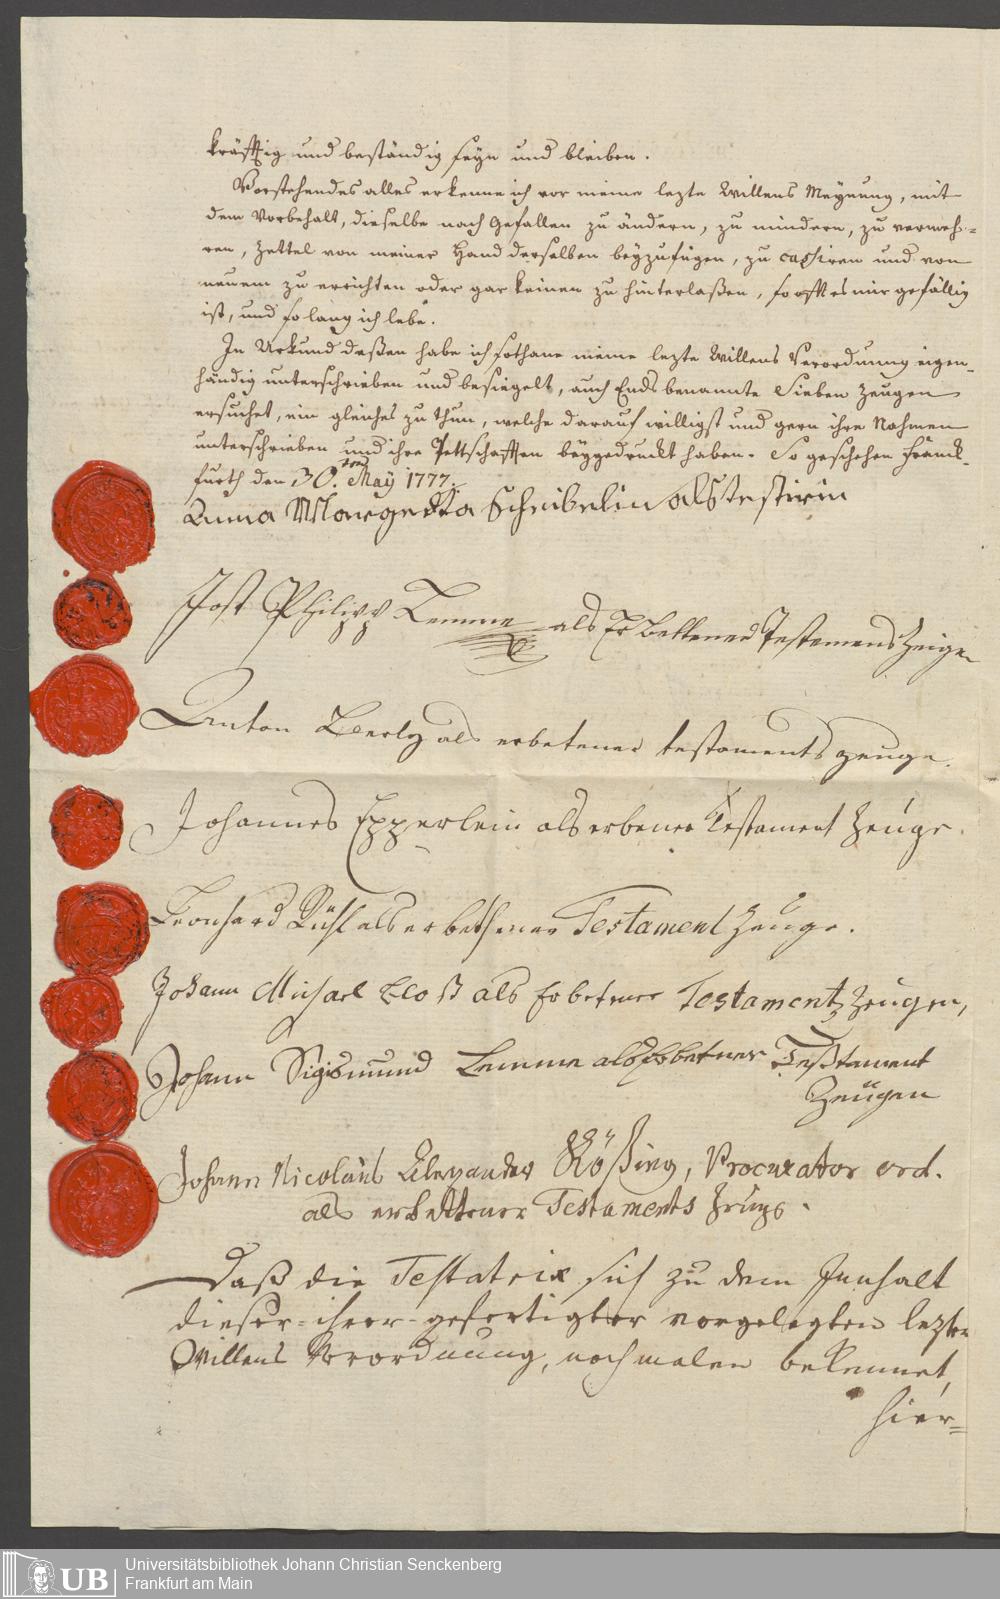 kräfftig und beständig seyn und bleiben.
Vorstehendes alles erkenne ich vor meine lezte Willens Meynung, mit
dem Vorbehalt, dieselbe nach Gefallen zu ändern, zu mindern, zu vermeh-
ren, Zettel von meiner Hand derselben beyzufügen, zu cassiren und von
neuem zu errichten oder gar keinen zu hinterlaßen, so offt es mir gefällig
ist, und so lang ich lebe.
In Urkund deßen habe ich sothane meine lezte Willens Verordnung eigen-
händig unterschrieben und besiegelt, auch Ends benannte Sieben Zeugen
ersuchet, ein gleiches zu thun, welche darauf willigst und gern ihre Nahmen
unterschrieben und ihre Pettschafften beygedruckt haben. So geschehen Franck-
furth den 30.ten May 1777.
Anna Margretta Scheibelin als testirin
Jost Philipp Lemme als Erbettener Testaments Zeige
Anton als erbetener testaments zeuge.
Johannes Epperlein als erbener Testament Zeuge.
Leonhard Rühl als erbethener Testament Zeuge.
Johann Michael Kloß als Erbetener Testament Zeugen,
Johann Sigismund Lemme als Erbetner Teßtament
Zeügen
Johann Nicolaus Alexander Rößing, Procurator ord.
als erbettener Testaments Zeuge.
Daß die Testatrix sich zu dem Innhalt
dieser-ihrer-gefertigter vorgelegten lezten
Willens Verordnung, nochmalen bekennet,
hier=
UB
Universitätsbibliothek Johann Christian Senckenberg
Frankfurt am Main